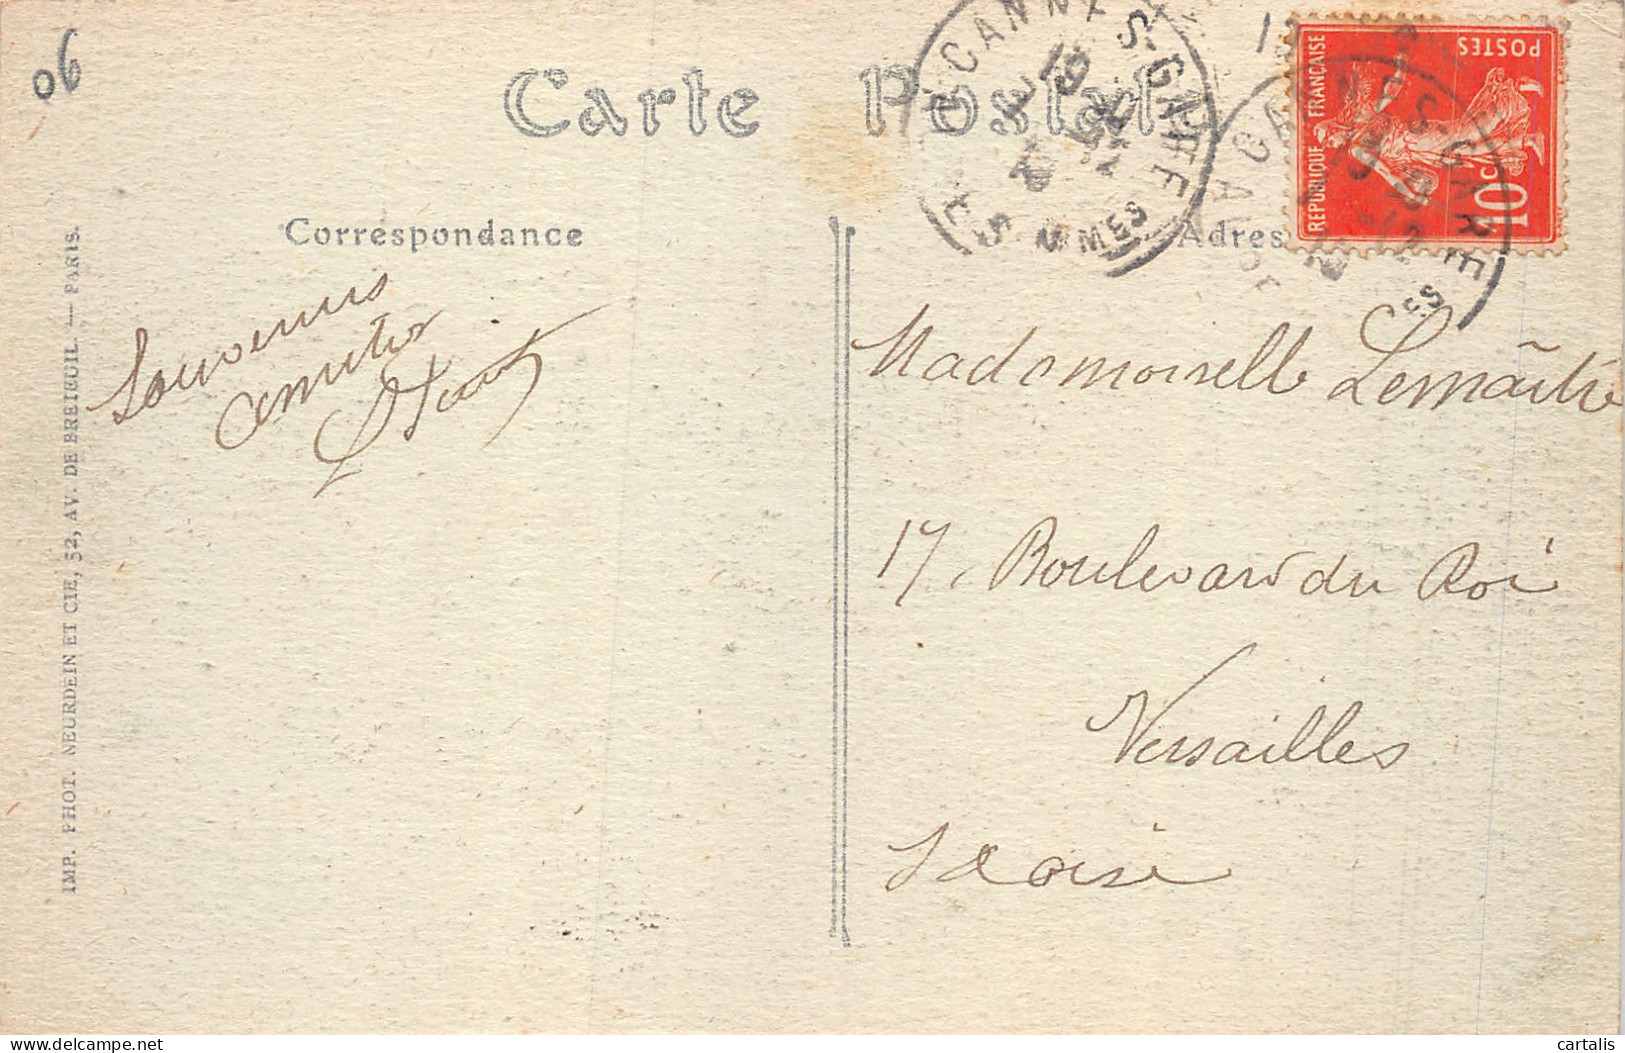 06
Carte Postale
CANNES-GARE
MMES
CANNES-GARE
POSTES
REPUBLIQUE FRANÇAISE
10c
Correspondance
Adres
Souvenirs
Mademoiselle Lemaître
17, Boulevard du Roi
Versailles
S & Oise
IMP. PHOT. NEURDEIN ET CIE, 52, AV. DE BREIEUIL. — PARIS.
cartalis